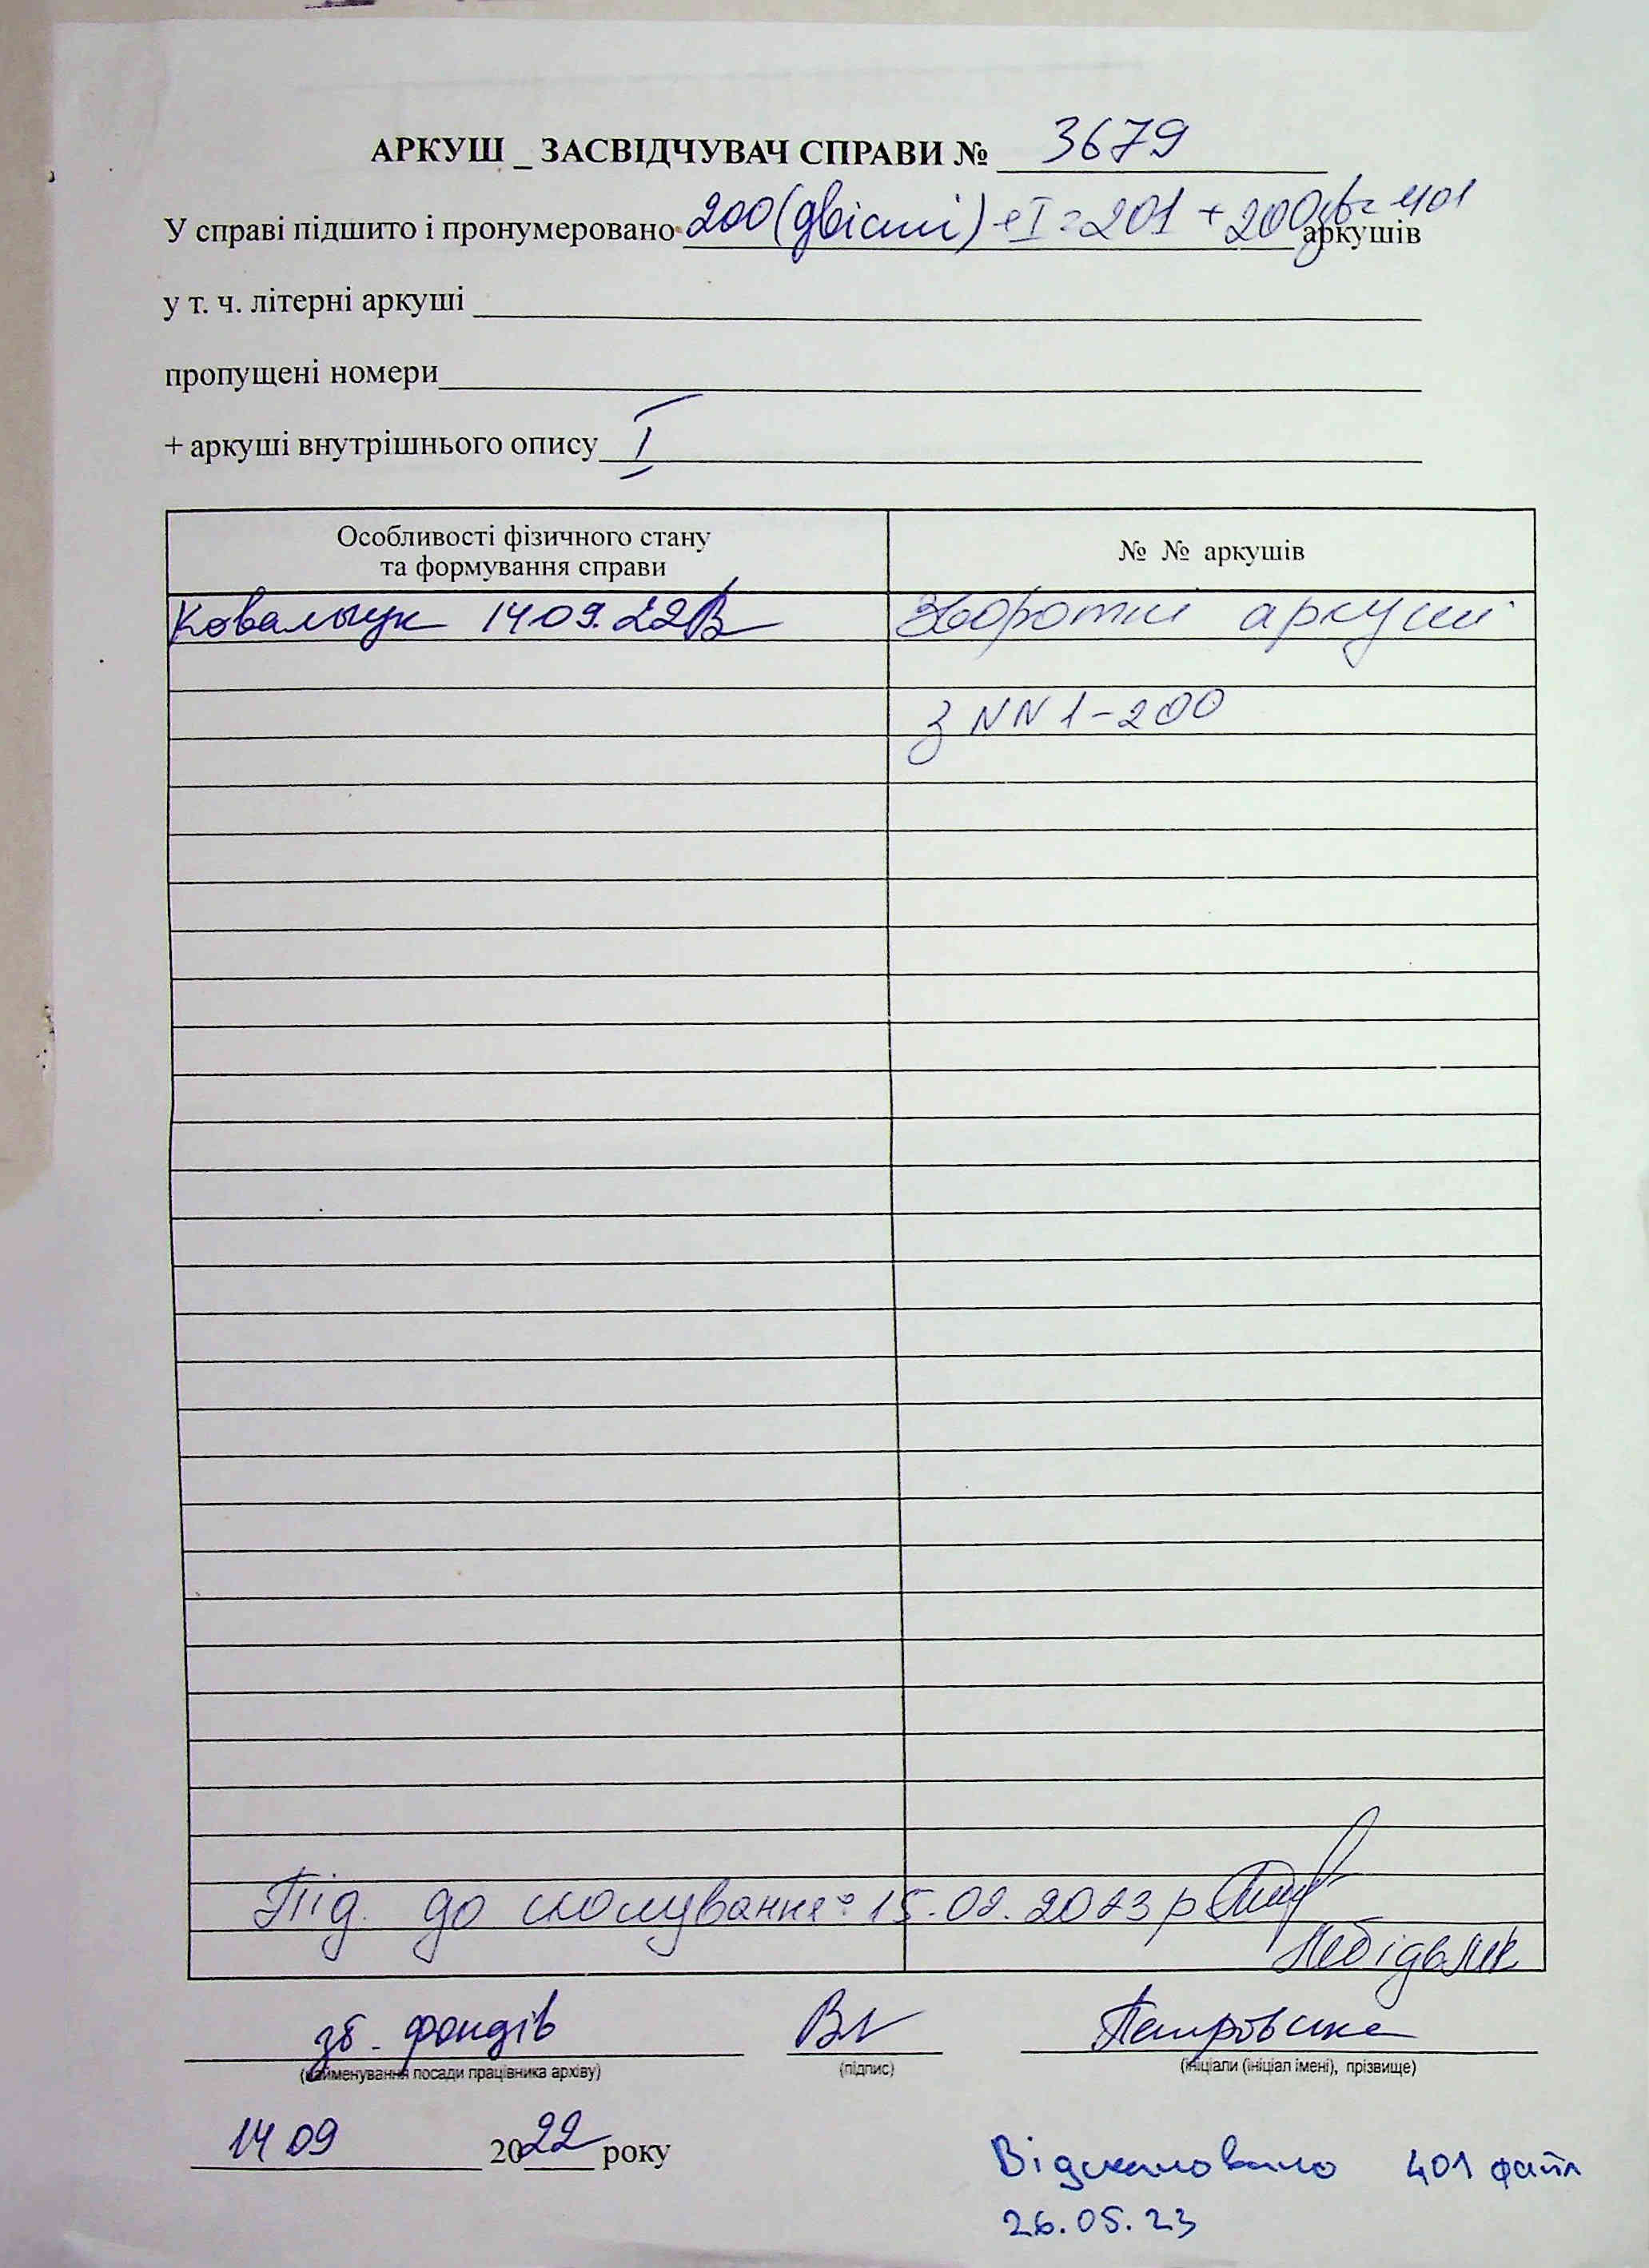 АРКУШ _ ЗАСВІДЧУВАЧ СПРАВИ № 3679
У справі підшито і пронумеровано 200 (двісті) + I = 201 + 200зв = 401 аркушів
у т. ч. літерні аркуші
пропущені номери
+ аркуші внутрішнього опису I
Особливості фізичного стану
та формування справи
№ № аркушів
Ковальчук 14 09. 22
Зворотні аркуші
з NN 1-200
Під. до сканування: 15.02.2023 р
зб. фондів Петровська
(найменування посади працівника архіву) (підпис) (ініціали (ініціал імені), прізвище)
14 09 2022 року
Відскановано 401 файл
26.05.23